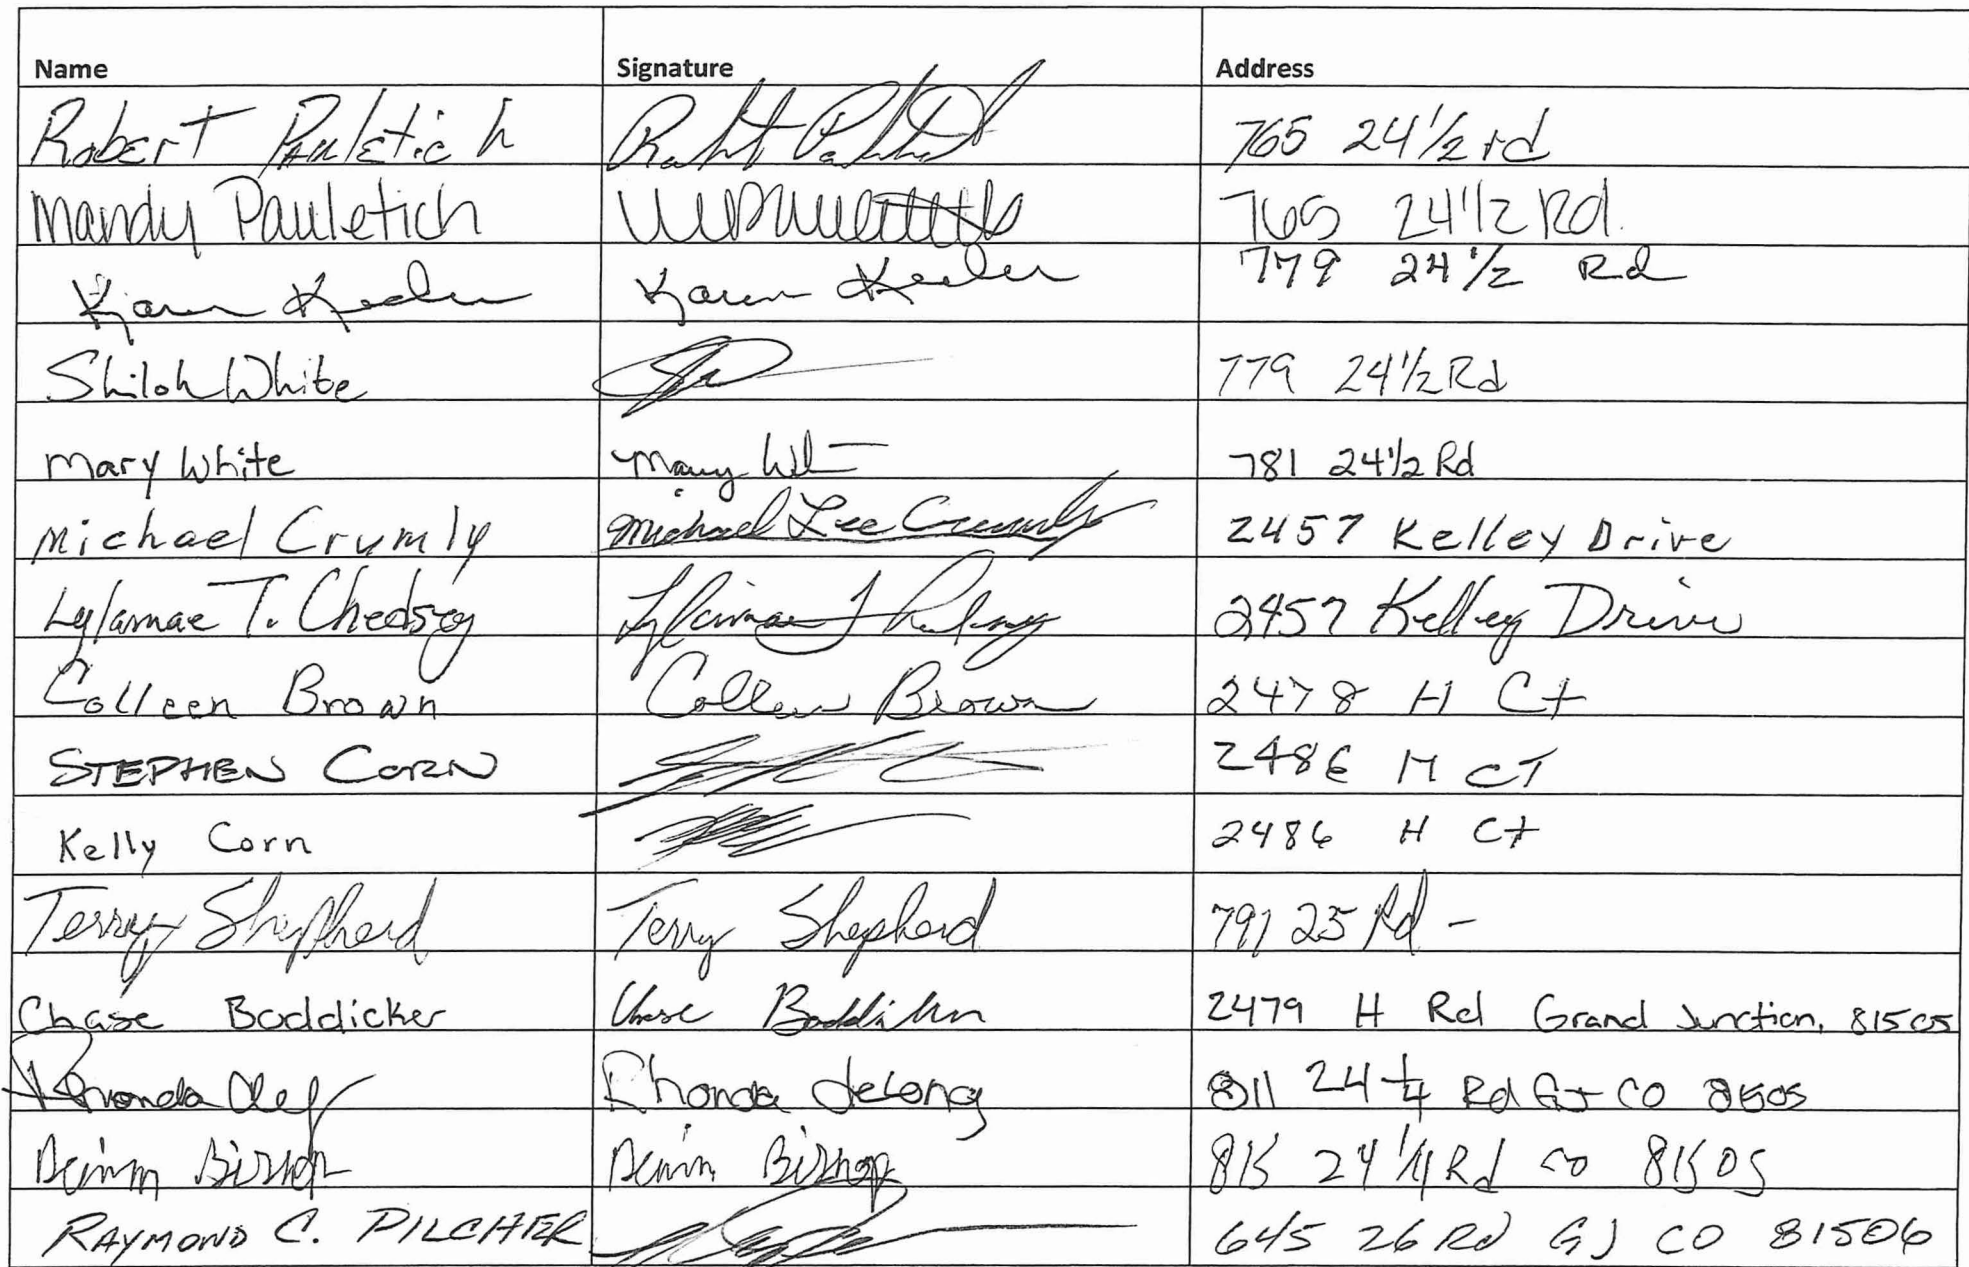 Name Signature Address
Robert Pauletich 765 24 1/2 rd
Mandy Pauletich 765 24 1/2 Rd.
Karen Keeler Karen Keeler 779 24 1/2 Rd
Shiloh White 779 24 1/2 Rd
Mary White Mary 781 24 1/2 Rd
Michael Crumly Michael Lee Crumly 2457 Kelley Drive
Lylamae T. Chedsey 2457 Kelley Drive
Colleen Brown Colleen Brown 2478 H Ct
STEPHEN CORN 2486 H CT
Kelly Corn 2486 H Ct
Terry Shepherd Terry Shepherd 791 25 Rd -
Chase Boddicker Chase Boddicker 2479 H Rd Grand Junction, 81505
Rhonda Rhonda deLong 811 24 1/4 Rd GJ CO 81505
Bishop Bishop 815 24 1/4 Rd CO 81505
RAYMOND C. PILCHER 645 26 Rd GJ CO 81506